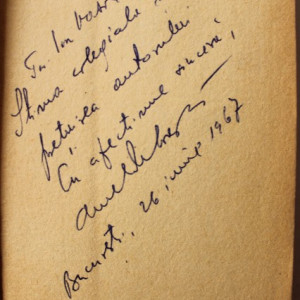 Ion
Stima colegială
prețuirea autorului
Cu afecțiune sinceră,
București, 26 iunie 1967